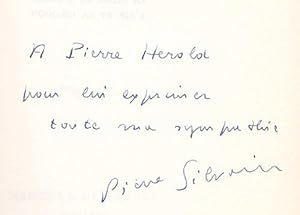 A Pierre Herold
pour lui exprimer
toute ma sympathie
Pierre Silvain